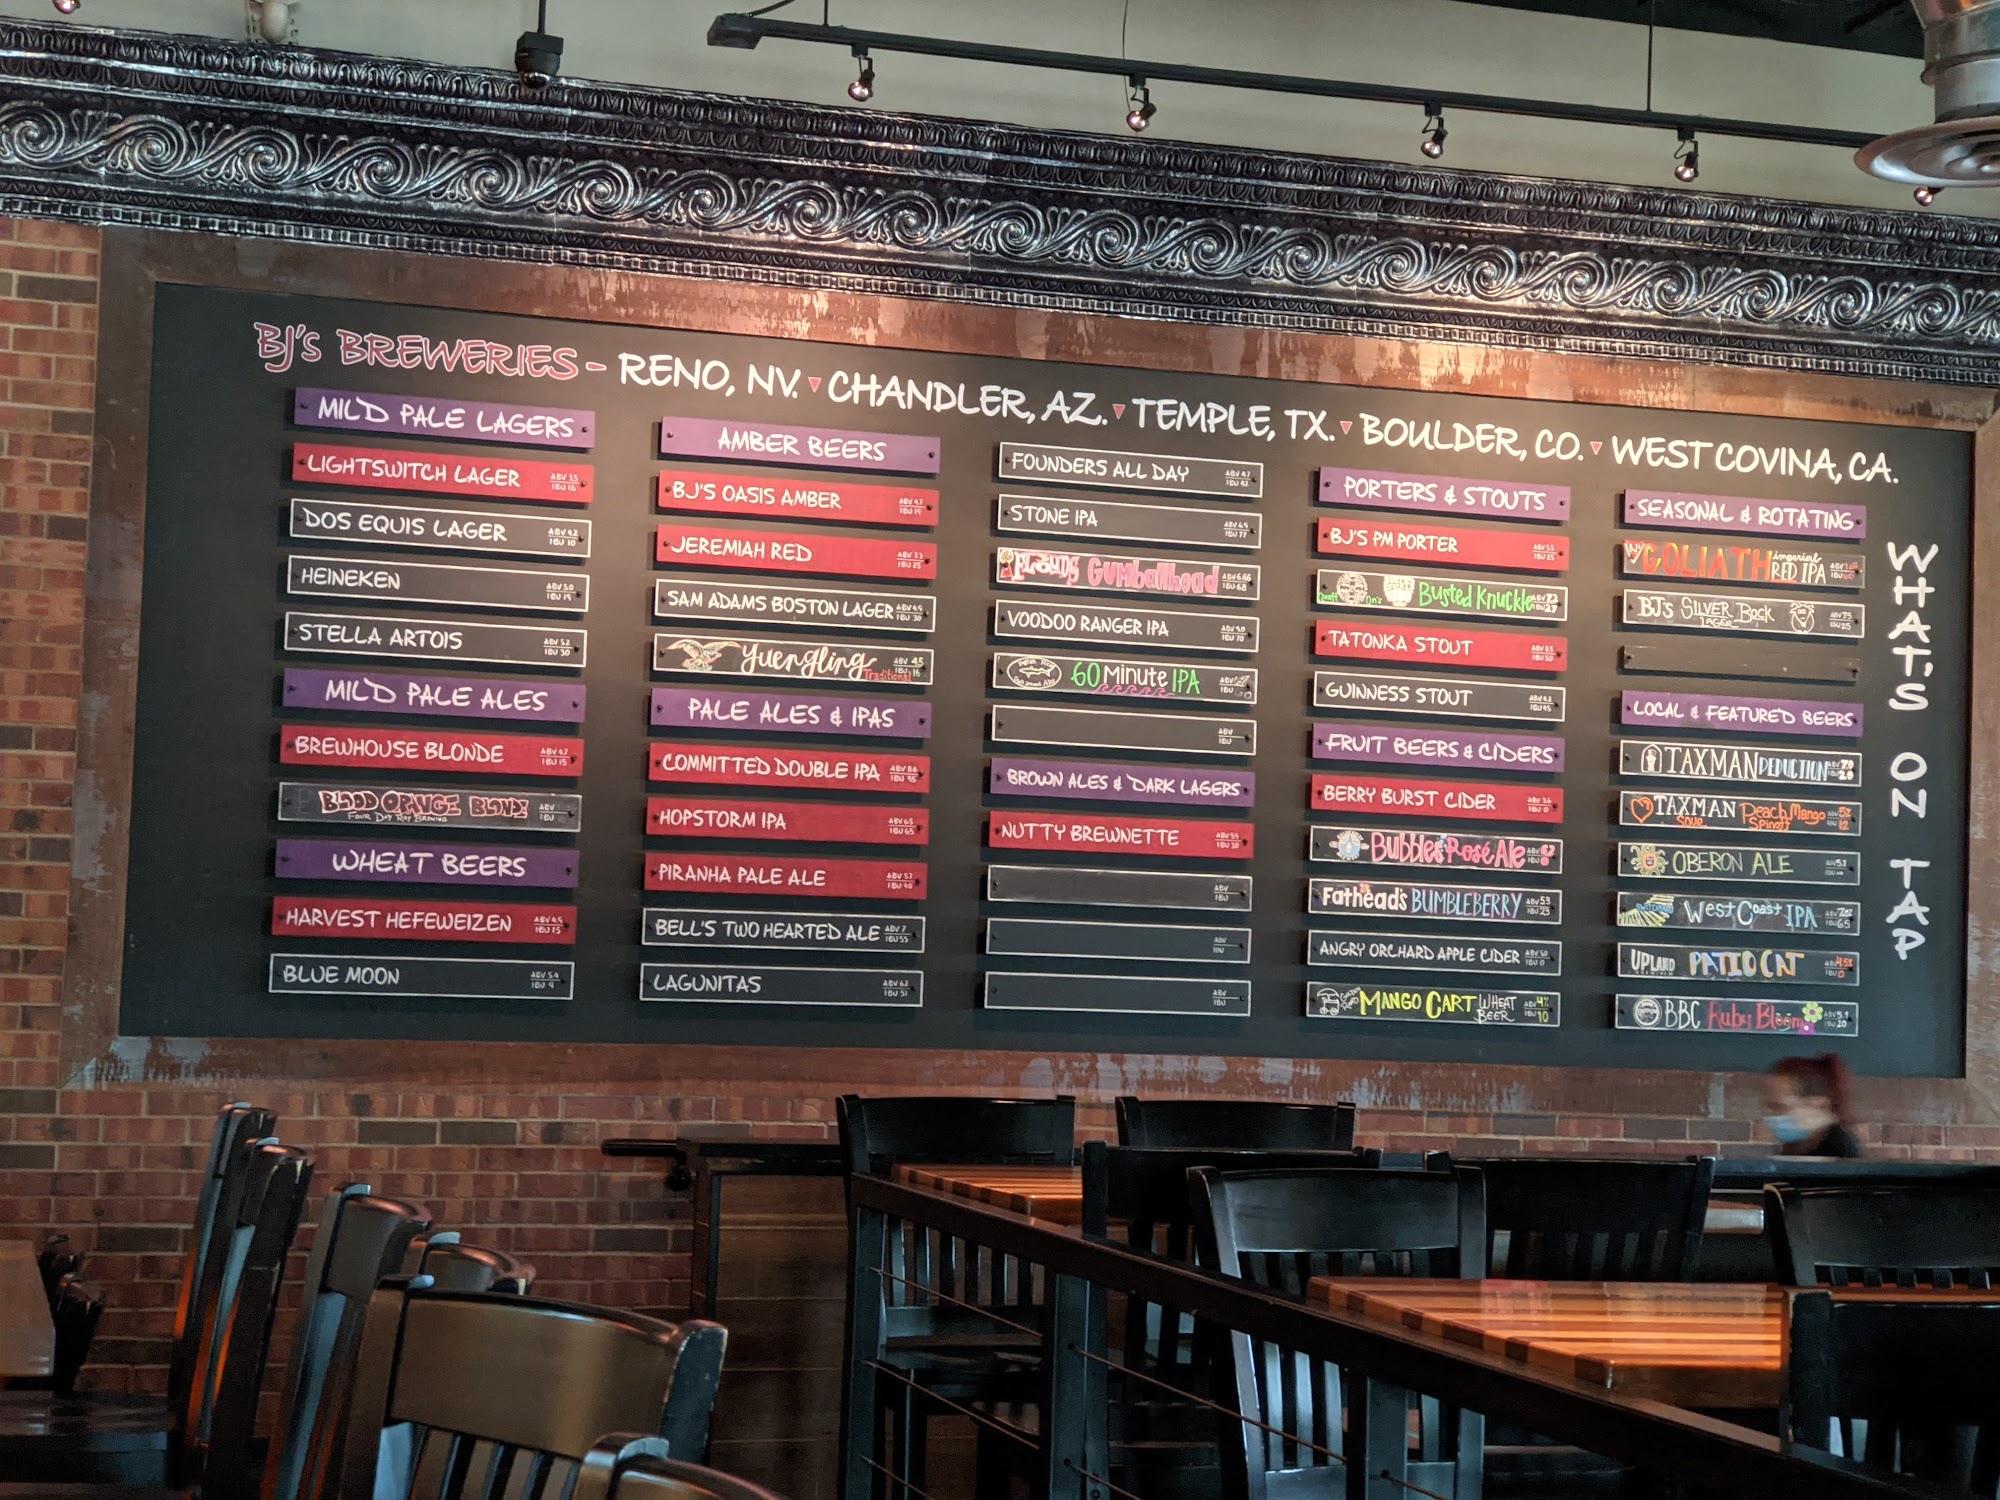 BJ's BREWERIES - RENO, NV. CHANDLER, AZ. TEMPLE, TX. BOULDER, CO. WEST COVINA, CA.
MILD PALE LAGERS
LIGHTSWITCH LAGER ABV 3.5 IBU 16
DOS EQUIS LAGER ABV 4.2 IBU 10
HEINEKEN ABV 5.0 IBU 19
STELLA ARTOIS ABV 5.2 IBU 30
MILD PALE ALES
BREWHOUSE BLONDE ABV 4.7 IBU 15
BLOOD ORANGE BLONDE ABV
FOUR DAY RAY BREWING IBU
WHEAT BEERS
HARVEST HEFEWEIZEN ABV 4.9 IBU 15
BLUE MOON ABV 5.4 IBU 9
AMBER BEERS
BJ'S OASIS AMBER ABV 4.7 IBU 19
JEREMIAH RED ABV 7.3 IBU 25
SAM ADAMS BOSTON LAGER ABV 4.9 IBU 30
Yuengling ABV 4.5
Traditional IBU 16
PALE ALES & IPAS
COMMITTED DOUBLE IPA ABV 8.6 IBU 95
HOPSTORM IPA ABV 6.5 IBU 65
PIRANHA PALE ALE ABV 5.7 IBU 40
BELL'S TWO HEARTED ALE ABV 7 IBU 55
LAGUNITAS ABV 6.2 IBU 51
FOUNDERS ALL DAY ABV 4.7 IBU 42
STONE IPA ABV 6.9 IBU 77
FLOYDS Gumballhead ABV 6.66 IBU 68
VOODOO RANGER IPA ABV IBU 70
60 Minute IPA ABV IBU
ABV IBU
BROWN ALES & DARK LAGERS
NUTTY BREWNETTE ABV 5.9 IBU 30
ABV IBU
ABV IBU
ABV IBU
PORTERS & STOUTS
BJ'S PM PORTER ABV 5.5 IBU 25
Quaff On's Busted Knuckle ABV 7.2 IBU 27
TATONKA STOUT ABV 8.5 IBU 50
GUINNESS STOUT ABV 4.2 IBU 45
FRUIT BEERS & CIDERS
BERRY BURST CIDER ABV 3.6 IBU 0
Bubbles Rosé Ale ABV 6.2 IBU
Fathead's BUMBLEBERRY ABV 5.3 IBU 23
ANGRY ORCHARD APPLE CIDER ABV 5.0 IBU 0
MANGO CART WHEAT ABV 4%
BEER IBU 10
SEASONAL & ROTATING
GOLIATH imperial ABV
RED IPA IBU
BJ's SILVER Bock ABV 7.5
LAGER IBU 25
LOCAL & FEATURED BEERS
TAXMAN DEDUCTION ABV 7.0 IBU 20
TAXMAN Peach Mango ABV 5%
Sour Spinoff IBU 12
OBERON ALE ABV 5.8 IBU
WEST COAST IPA ABV IBU 65
UPLAND PATIO CAT ABV 4.5% IBU 0
BBC Ruby Bloom ABV 5.9 IBU 20
WHAT'S ON TAP